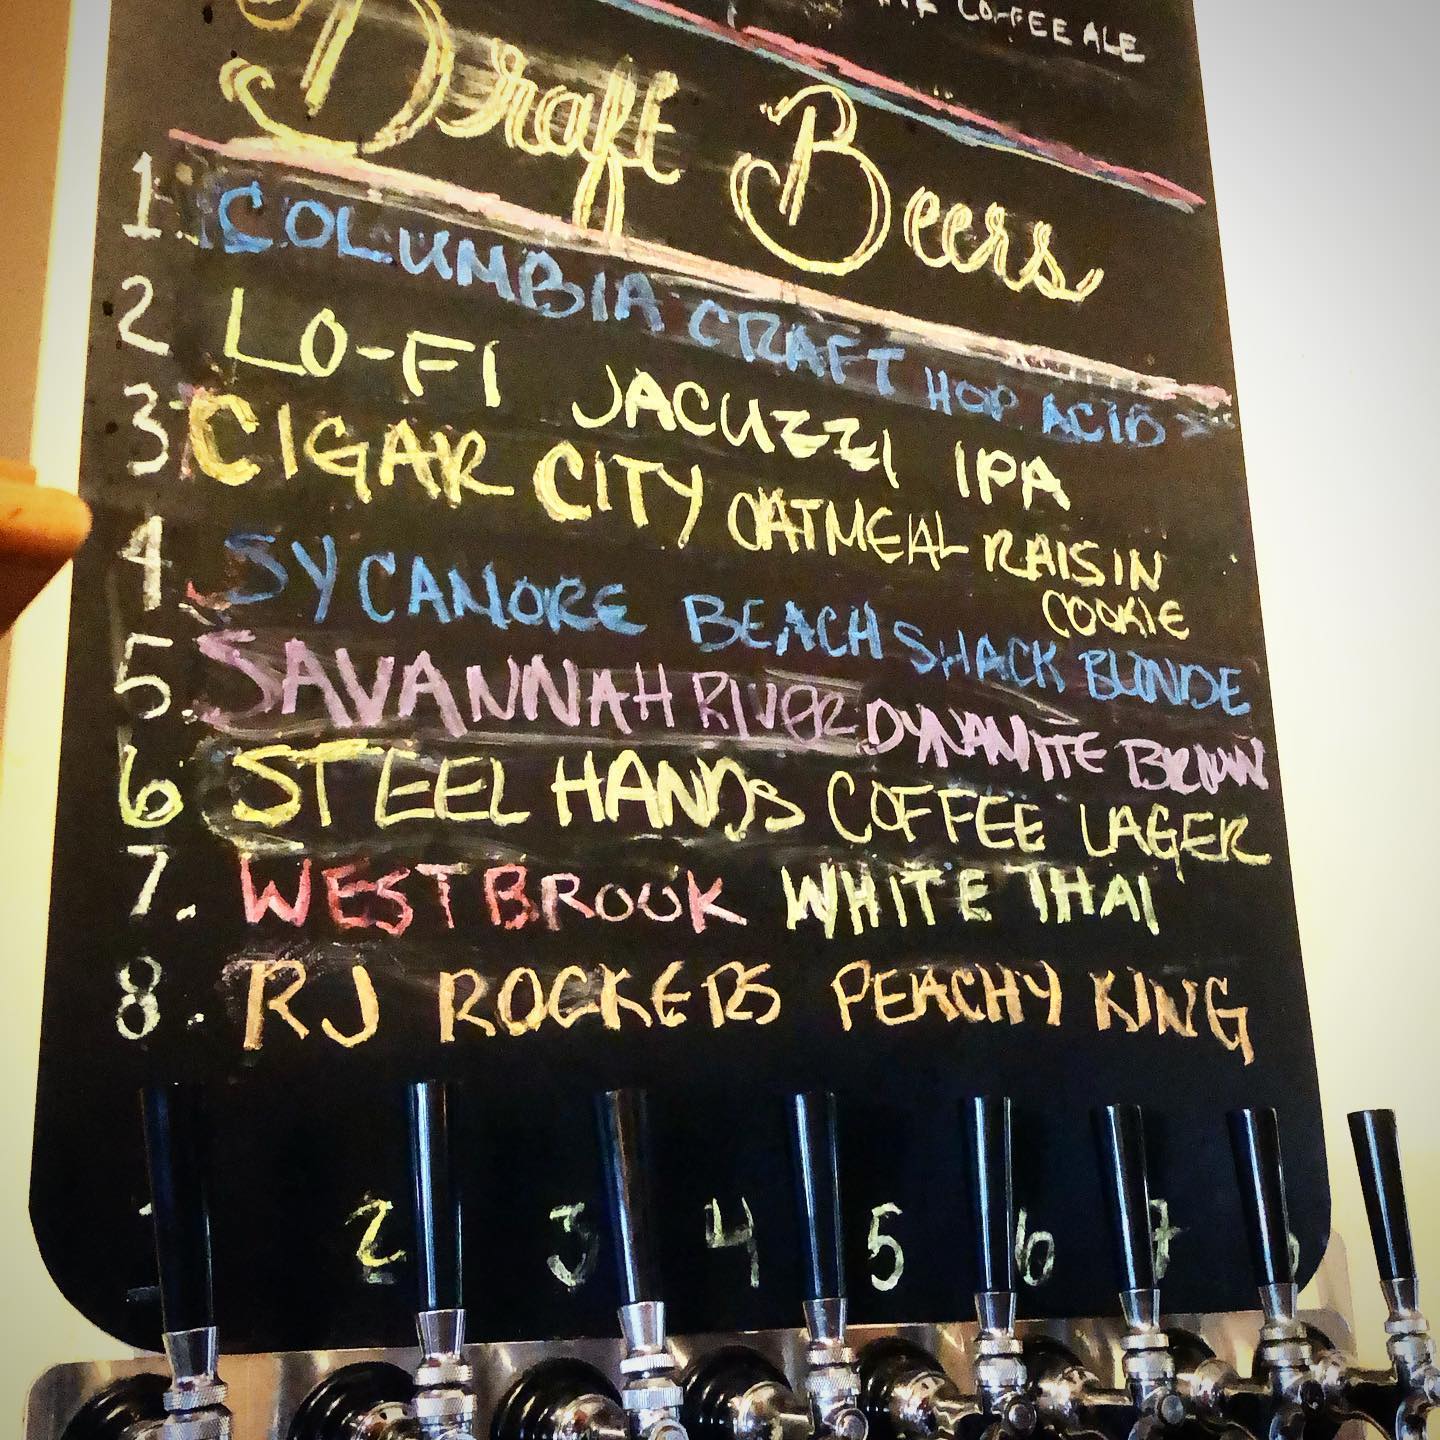 COFFEE ALE
Draft Beers
1. COLUMBIA CRAFT HOP ACID
2 LO-FI JACUZZI IPA
3 CIGAR CITY OATMEAL RAISIN
COOKIE
4 SYCAMORE BEACH SHACK BLONDE
5. SAVANNAH RIVER DYNAMITE BROWN
6 STEEL HANDS COFFEE LAGER
7. WESTBROOK WHITE THAI
8. RJ ROCKERS PEACHY KING
2 3 4 5 6 7